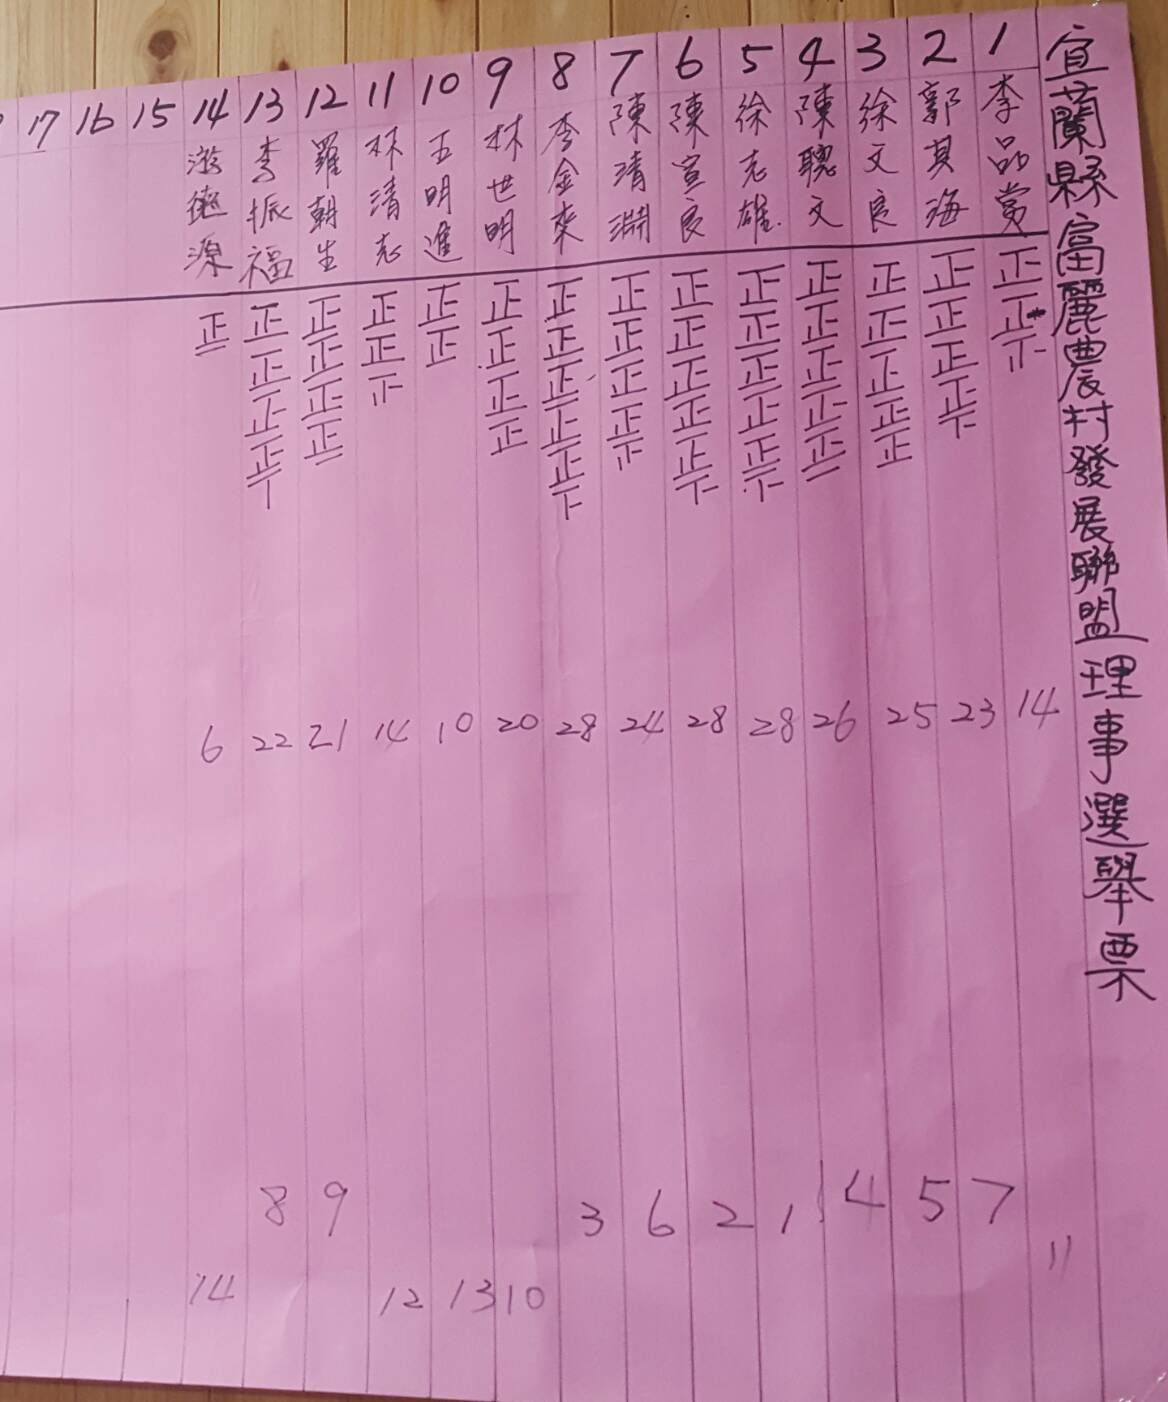 宜蘭縣富麗農村發展聯盟理事選舉票
1 李品賞 正正下 14 11
2 郭其海 正正正正下 23 7
3 徐文良 正正正正正 25 5
4 陳聰文 正正正正正一 26 4
5 徐志雄 正正正正正下 28 1
6 陳宣良 正正正正正下 28 2
7 陳清淵 正正正正 24 6
8 李金來 正正正正正下 28 3
9 林世明 正正正正 20 10
10 王明進 正正 10 13
11 林清志 正正 14 12
12 羅朝生 正正正正一 21 9
13 李振福 正正正正丅 22 8
14 游德源 正一 6 14
15
16
17